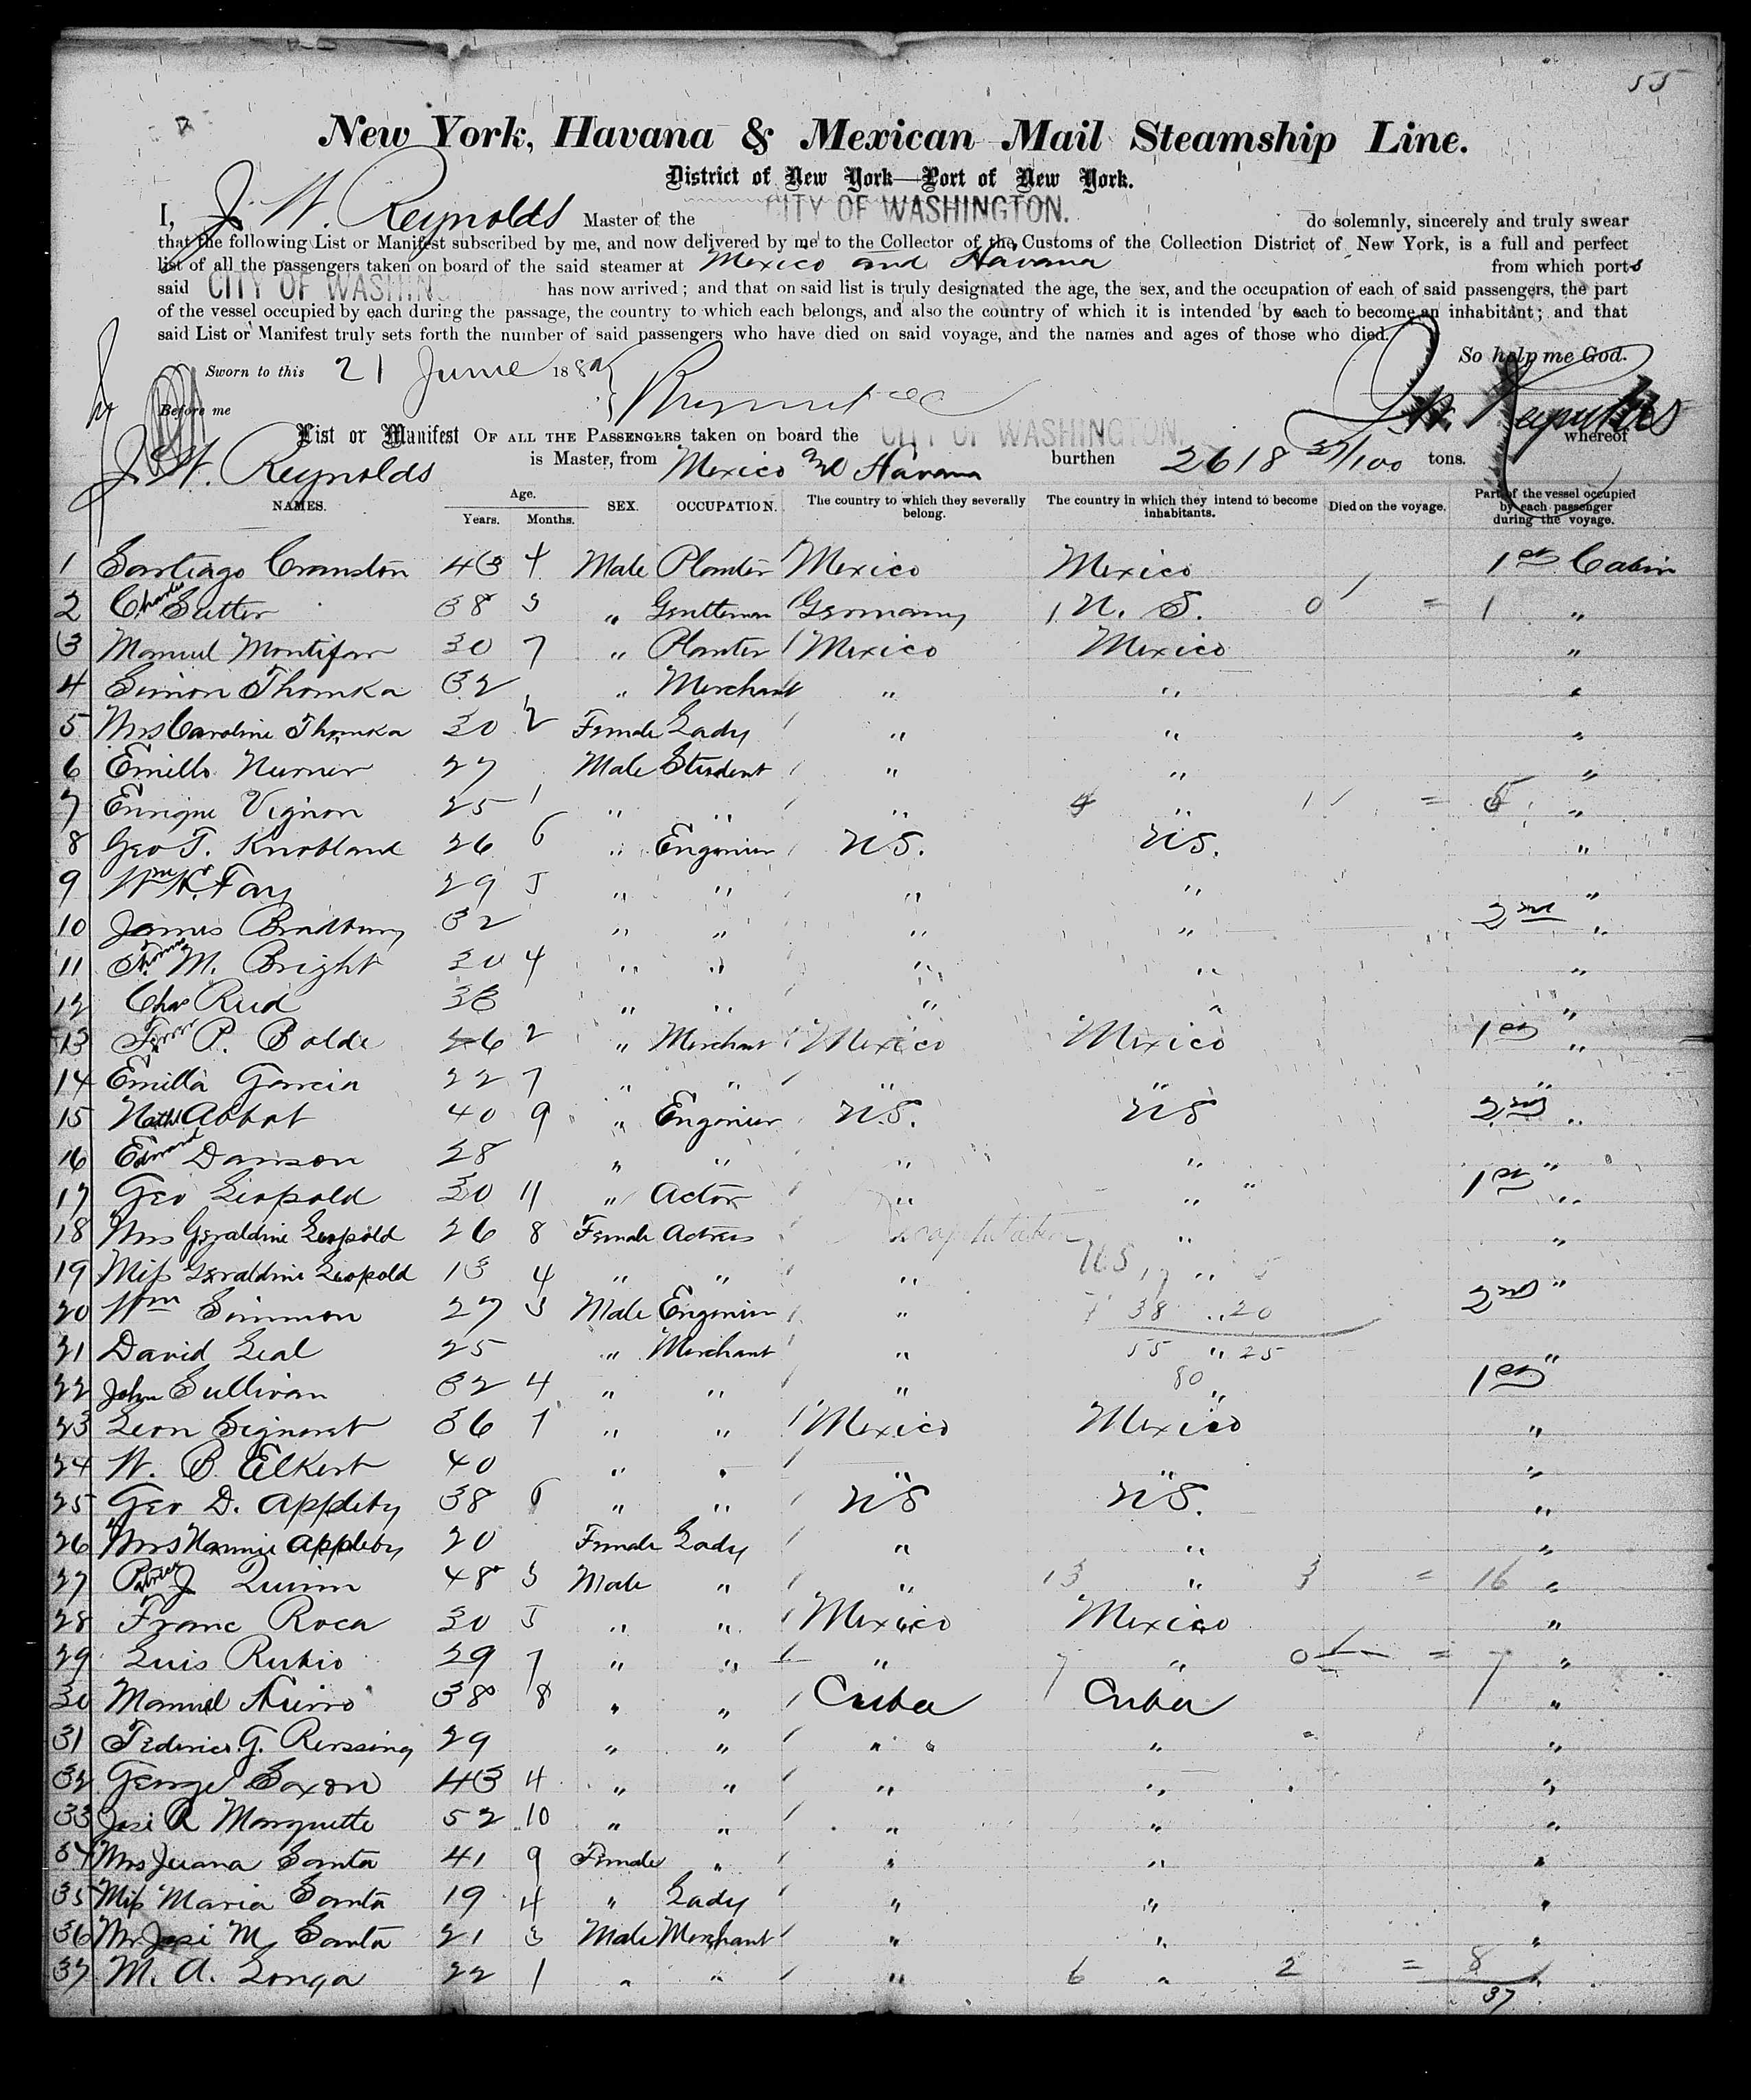 55
New York, Havana & Mexican Mail Steamship Line.
District of New York—Port of New York.
I, J. W. Reynolds Master of the CITY OF WASHINGTON. do solemnly, sincerely and truly swear
that the following List or Manifest subscribed by me, and now delivered by me to the Collector of the Customs of the Collection District of New York, is a full and perfect
list of all the passengers taken on board of the said steamer at Mexico and Havana from which ports
said CITY OF WASHIN has now arrived; and that on said list is truly designated the age, the sex, and the occupation of each of said passengers, the part
of the vessel occupied by each during the passage, the country to which each belongs, and also the country of which it is intended by each to become an inhabitant; and that
said List or Manifest truly sets forth the number of said passengers who have died on said voyage, and the names and ages of those who died.
So help me God.
Sworn to this 21 June 188
Before me
List or Manifest OF ALL THE PASSENGERS taken on board the CITY OF WASHINGTON. whereof
J. W. Reynolds is Master, from Mexico and Havana burthen 2618 /100 tons.
NAMES. Age. Years. Months. SEX. OCCUPATION. The country to which they severally belong. The country in which they intend to become inhabitants. Died on the voyage. Part of the vessel occupied by each passenger during the voyage.
1 Santiago Cranston 43 4 Male Planter Mexico Mexico 1st Cabin
2 Charles Sutter 38 3 " Gentleman Germany 1 U. S. 0 = 1 "
3 Manuel Montifar 30 7 " Planter Mexico Mexico "
4 Simon Thomka 32 " Merchant " " "
5 Mrs Caroline Thomka 30 2 Female Lady " " "
6 Emillo Nurner 27 Male Student " " "
7 Enrique Vignon 25 1 " " " 4 " 1 = 5 "
8 Geo T. Knobland 26 6 " Enginier U S. U S. "
9 Wm H. Fay 29 5 " " " " "
10 James Bradbury 32 " " " " 2nd "
11 Thomas M. Bright 30 4 " " " " "
12 Chas Ruid 33 " " " " "
13 P. Bolde 26 2 " Merchant Mexico Mexico 1st "
14 Emilla Garcia 22 7 " " " " "
15 Nathl Abbot 40 9 " Enginier U S. U S 2nd "
16 Edmand Danson 28 " " " " "
17 Geo Liopold 30 11 " Actor " " 1st "
18 Mrs Geraldine Leopold 26 8 Female Actress " "
19 Miss Geraldine Leopold 13 4 " " " US 17 " 5 "
20 Wm Simmon 27 3 Male Enginier " 38 " 20 2nd
21 David Leal 25 " Merchant " 55 " 25 "
22 John Sullivan 32 4 " " " 80 " 1st
23 Leon Signoret 36 1 " " Mexico Mexico "
24 W. B. Elkert 40 " " " " "
25 Geo D. Appleby 38 6 " " U S U S. "
26 Mrs Nannie Appleby 20 Female Lady " " "
27 Patrick J Quinn 48 3 Male " " 13 " 3 = 16 "
28 Franc Roca 30 5 " " Mexico Mexico "
29 Luis Rubio 29 7 " " " 7 " 0 = 7 "
30 Manuel Nurro 38 8 " " Cuba Cuba "
31 Federico G. Rerssing 29 " " " " "
32 George Saxon 43 4 " " " " "
33 Jose R Marquette 52 10 " " " " "
34 Mrs Juana Santa 41 9 Female " " " "
35 Miss Maria Santa 19 4 " Lady " " "
36 Mr Jose M Santa 21 3 Male Merchant " " "
37 M. A. Longa 22 1 " " " 6 " 2 = 8 "
37